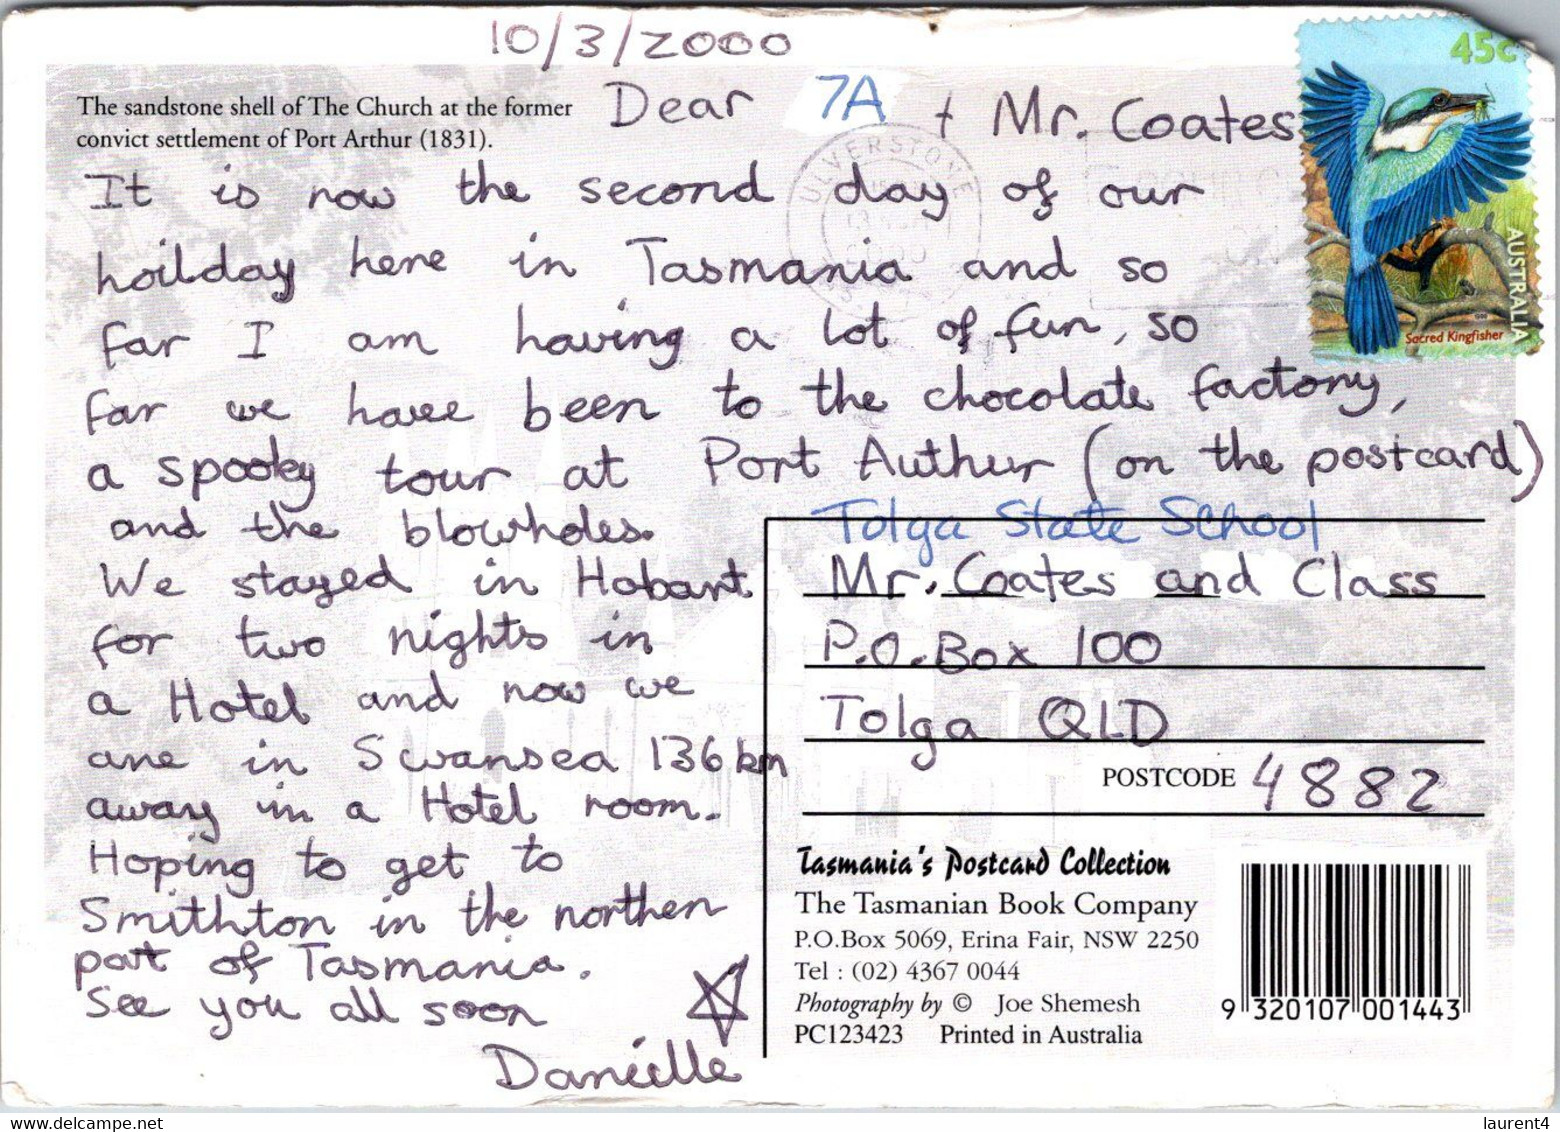 10/3/2000
The sandstone shell of The Church at the former
convict settlement of Port Arthur (1831).
Dear 7A + Mr. Coates
It is now the second day of our
hoilday here in Tasmania and so
far I am having a lot of fun, so
far we have been to the chocolate factory,
a spooky tour at Port Authur (on the postcard)
and the blowholes.
We stayed in Hobart
for two nights in
a Hotel and now we
are in Swansea 136 km
away in a Hotel room.
Hoping to get to
Smithton in the northen
part of Tasmania.
See you all soon
Danielle
45c
AUSTRALIA
Sacred Kingfisher
ULVERSTONE
Tolga State School
Mr. Coates and Class
P.O. Box 100
Tolga QLD
POSTCODE 4882
Tasmania's Postcard Collection
The Tasmanian Book Company
P.O.Box 5069, Erina Fair, NSW 2250
Tel : (02) 4367 0044
Photography by © Joe Shemesh
PC123423 Printed in Australia
9 320107 001443
laurent4